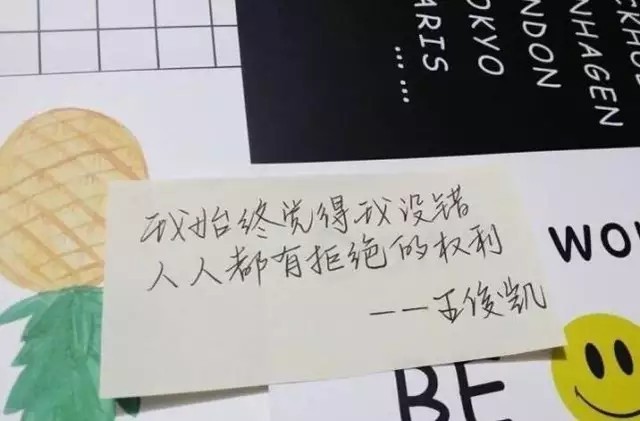 PARIS
TOKYO
LONDON
......
我始终觉得我没错
人人都有拒绝的权利
——王俊凯
WO
BE